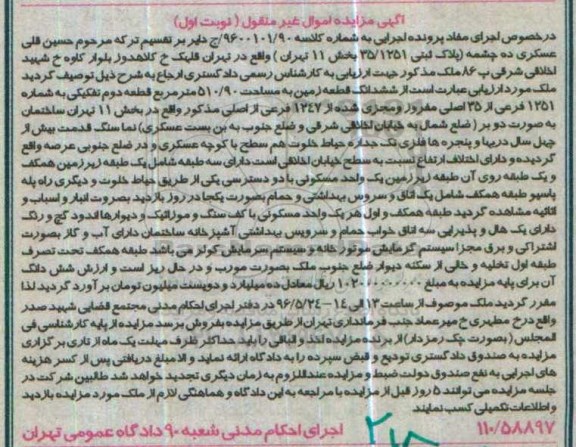 آگهی مزایده اموال غیر منقول ( نوبت اول)
درخصوص اجرای مفاد پرونده اجرایی به شماره کلاسه ۹۶۰۰۱۰۱/۹۰/ج دایر بر تقسیم ترکه مرحوم حسین قلی
عسکری ده چشمه (پلاک ثبتی ۳۵/۱۲۵۱ بخش ۱۱ تهران ) واقع در تهران قلهک خ کلاهدوز بلوار کاوه خ شهید
اخلاقی شرقی پ ۸۶ ملک مذکور جهت ارزیابی به کارشناس رسمی دادگستری ارجاع به شرح ذیل توصیف گردید
ملک مورد ارزیابی عبارت است از ششدانگ قطعه زمین به مساحت ۵۱۰/۹۰ مترمربع قطعه دوم تفکیکی به شماره
۱۲۵۱ فرعی از ۳۵ اصلی مفروز ومجزی شده از ۱۲۴۷ فرعی از اصلی مذکور واقع در بخش ۱۱ تهران ساختمان
به صورت دو بر ( ضلع شمال به خیابان اخلاقی شرقی و ضلع جنوب به بن بست عسکری) نما سنگ قدمت بیش از
چهل سال دربها و پنجره ها فلزی تک جداره حیاط خلوت هم سطح با کوچه عسکری و در ضلع جنوبی عرصه واقع
گردیده و دارای اختلاف ارتفاع نسبت به سطح خیابان اخلاقی است دارای سه طبقه شامل یک طبقه زیرزمین همکف
و یک طبقه روی آن طبقه زیرزمین یک واحد مسکونی با دو دسترسی یکی از طریق حیاط خلوت و دیگری راه پله
پاسیو طبقه همکف شامل یک اتاق و سرویس بهداشتی و حمام بصورت یکجا در روز بازدید بصورت انبار و اسباب و
اثاثیه مشاهده گردید طبقه همکف و اول هر یک واحد مسکونی با کف سنگ و موزائیک و دیوارها اندود گچ و رنگ
دارای یک هال و پذیرایی سه اتاق خواب حمام و سرویس بهداشتی آشپزخانه ساختمان دارای آب و گاز بصورت
اشتراکی و برق مجزا سیستم گرمایش موتور خانه و سیستم سرمایش کولر می باشد طبقه همکف تحت تصرف
طبقه اول تخلیه و خالی از سکنه دیوار ضلع جنوب ملک بصورت مورب و در حال ریز است و ارزش شش دانگ
آن برای پایه مزایده به مبلغ ریال معادل ده میلیارد و دویست میلیون تومان برآورد گردید لذا
مقرر گردید ملک موصوف از ساعت ۱۳ الی ۱۴ - ۹۶/۵/۲۴ در دفتر اجرای احکام مدنی مجتمع قضایی شهید صدر
واقع درخ مطهری خ میرعماد جنب فرمانداری تهران از طریق مزایده بفروش برسد مزایده از پایه کارشناسی فی
المجلس ( بصورت چک رمزدار) از برنده مزایده اخذ و الباقی را باید حداکثر ظرف مهلت یک ماه از تاریخ برگزاری
مزایده به صندوق دادگستری تودیع و قبض سپرده را به دادگاه ارائه نماید و الا مبلغ دریافتی پس از کسر هزینه
های اجرایی به نفع صندوق دولت ضبط و مزایده عنداللزوم به زمان دیگری تجدید خواهد شد طالبین شرکت در
جلسه مزایده می توانند ۵ روز قبل از مزایده با مراجعه به این دادگاه و هماهنگی لازم از ملک مورد مزایده بازدید
و اطلاعات تکمیلی کسب نمایند
۱۱۰/۵۸۸۹۷ اجرای احکام مدنی شعبه ۹۰ دادگاه عمومی تهران